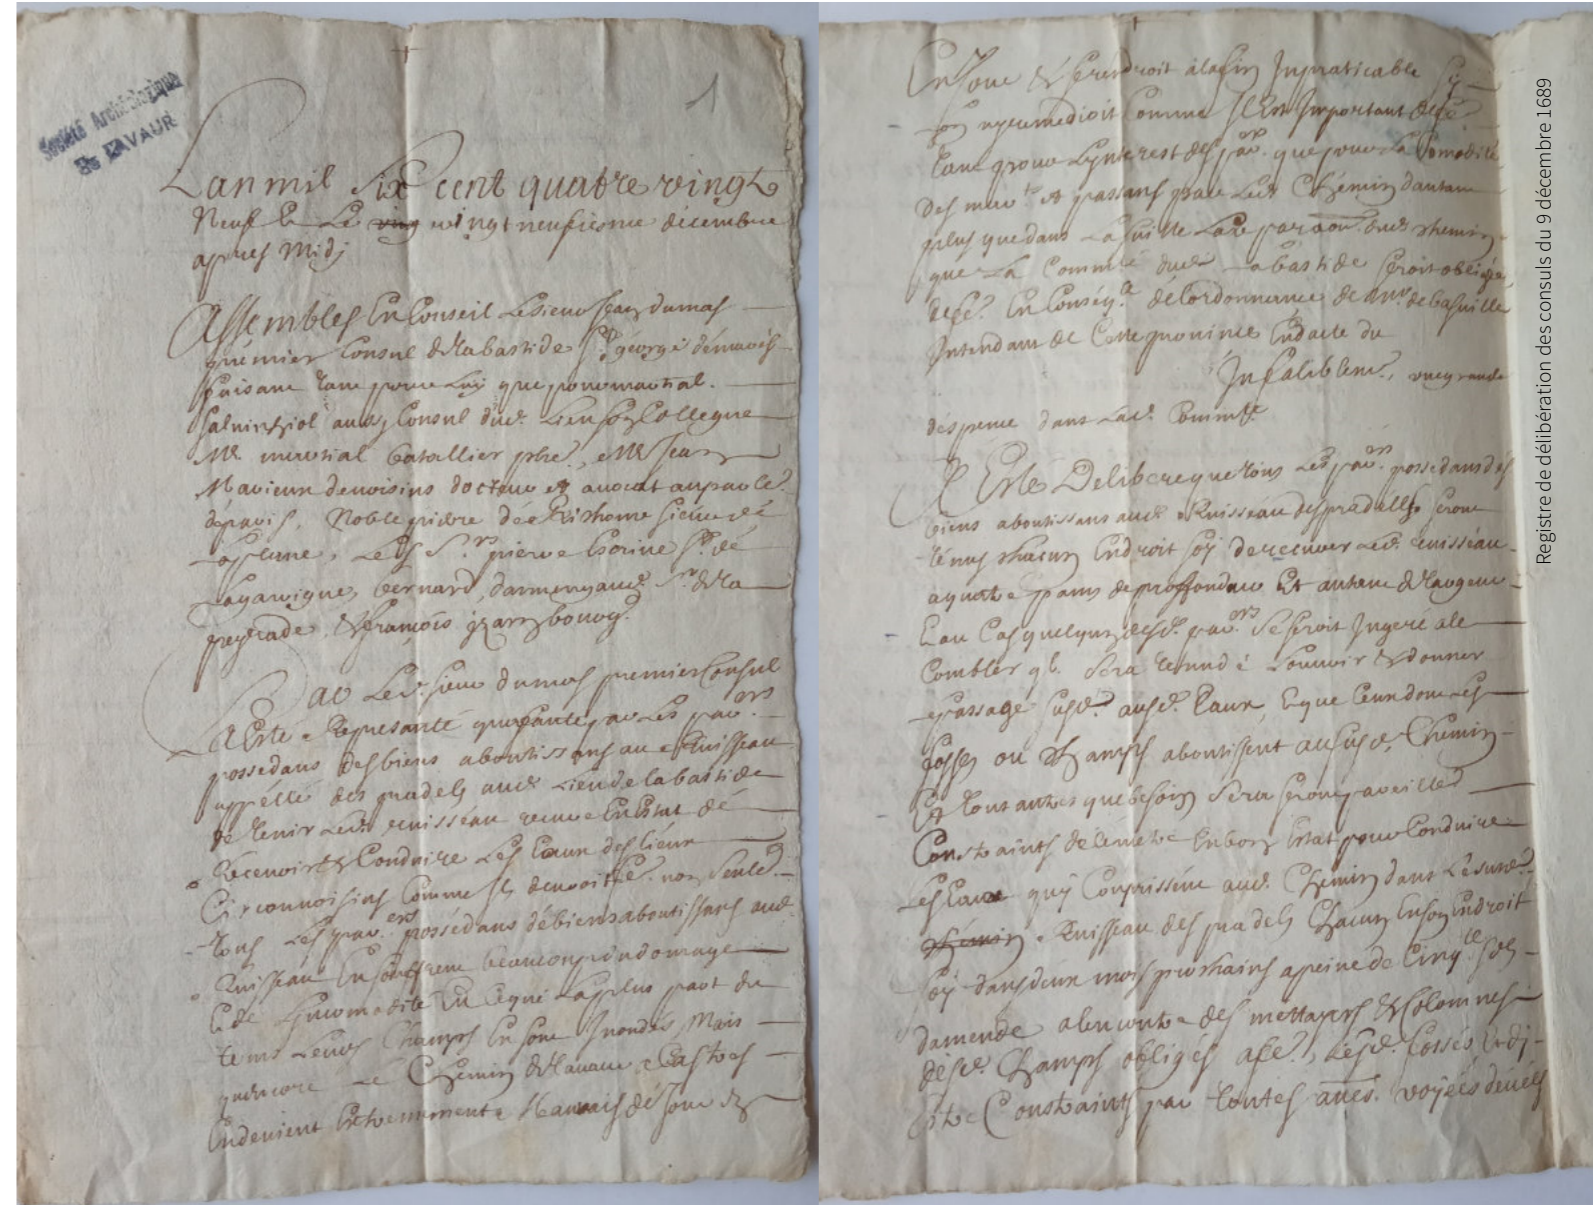 Société Archéologique
DE LAVAUR
1
Lan mil six cent quatre vingt
Neuf & Le ving vingt neufiesme décembre
apres Midj
Assembles En Conseil Le sieur Jean dumas
premier Consul de labastide St george
faisant tant pour Luy que pour martial
Consul dud. Lieu son Collegue
Mr martial batallier pbre, Mr Jean
denoisins docteur et avocat au parle.
Noble pierre sieur de
Lasplane, Les Srs pierre Sr de
Lagarrigue, bernard Sr de la
peyrade, & françois
Par Le d. sieur dumas premier Consul
a Esté Represanté que par Les parers
possedans des biens aboutissans au Ruisseau
appéllé des pradels aud. Lieu de labastide
de tenir Led. ruisséau En Estat dé
Récevoir & Conduire Les Eaux des lieux
Circonvoisins Comme Ils non Seulet.
tous Les parers possédans dé biens aboutissans aud.
Ruisseau En souffrent beaucoup du domage
& de Lincomodité En ce que La plus part du
tems Leurs Champs En sont Inondés, Mais
Le Chemin de Lavaur a Castres
En devient Extremement
En Joue & Se rendroit a la fin Inpraticable Sy
on ny remedioit Comme Il Est Important de fe.
Tant pour Lynterest des parers que pour La Comodité
des et passans par Led. Chemin dautant
plus que dans La suitte dud. chemin
que La Commté dud. Labastide seroit obligée
de fe. En Conséqe de Lordonnance de Mr de basville
Intendant de Cette province En datte du
Infaliblemt. une grande
déspence dans Lad. Commte
Il Este Delibere que tous Les parers possedans dés
biens aboutissans aud. Ruisséau des pradells seront
ténus chacun Endroit soy de recurer Led. ruisséau
a quatre pans de proffondeur Et autant de Largeur
En Cas quelqun desd. parers Se seroit Ingeré a le
Combler Il Sera ténu de Louvrir & donner
passage ausd. Eaux, Et que Ceux dont Les
fossés ou Champs aboutissent au susd. Chemin
Et tous autres que besoin Sera seront pareillet
Constraints de Les metre En bon Estat pour Conduire
Les Eaux aud. Chemin dans Le susd.
chemin Ruisseau des pradels Chacun En son Endroit
soy dans deux mois prochains a peine de Cinqte sols
damende a lencontre des mettayers &
desd. Champs obligés a fe. Lesd. fossés Et dy
Estre Constraints par toutes voyes deues
Registre de délibération des consuls du 9 décembre 1689